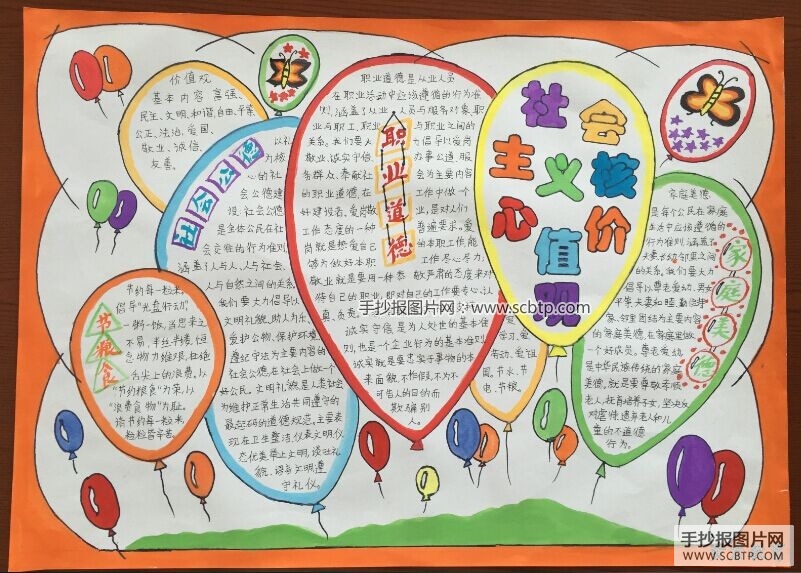 价值观
基本内容 富强、
民主、文明、和谐、自由、平等
公正、法治、爱国、
敬业、诚信、
友善。
社会公德
以礼
为核
心的社
会公德建
设、社会公德
是全体公民在社
会交往的行为准则,
涵盖了人与人、人与社会、
人与自然之间的关系。
我们要大力倡导以
文明礼貌、助人为乐、
爱护公物、保护环境、
遵纪守法为主要内容的
社会公德,在社会上做一个
好公民。文明礼貌是人类社会
为维护正常生活共同遵守的
最起码的道德规范,主要表
现在卫生整洁,仪表文明,仪
态优美举止文明,谈吐礼
貌、语言文明遵
守礼仪。
节粮食
节约每一粒米,
倡导"光盘行动",
一粥一饭,当思来之
不易,半丝半缕,恒
念物力维艰,杜绝
舌尖上的浪费,以
"节约粮食"为荣,以
"浪费食物"为耻。
请节约每一粒米,
粒粒皆辛苦。
职业道德
职业道德是从业人员
在职业活动中应该遵循的行为准
则,涵盖了从业人员与服务对象、职
业与职工、职业与职业之间的
关系。我们要大力倡导以爱岗
敬业、诚实守信、办事公道、服
务群众、奉献社会为主要内容
的职业道德,在工作中做个
好建设者。爱岗敬业,是对人们
工作态度的一种普遍要求,爱
岗就是热爱自己的本职工作,能
够为做好本职工作尽心尽力;
敬业就是要用一种恭敬严肃的态度来对
待自己的职业,即对自己的工作要专心、认
真、负责
诚实守信是为人处世的基本准
则,也是一个企业行为的基本准则
诚实就是要忠实于事物的本
来面貌,不作假,不为不
可告人的目的而
欺骗别
人。
社会
主义核
心价
值观
爱
学习、爱
劳动、爱祖
国。节水、节
电、节粮。
家庭美德
家庭美德
是每个公民在家庭
生活中应该遵循的
行为准则,涵盖了
夫妻、长幼、邻里之间
的关系,我们要大力
倡导以尊老爱幼、男女
平等、夫妻和睦、勤俭持
家、邻里团结为主要内容
的家庭美德,在家庭里做
一个好成员。尊老爱幼,
是中华民族传统的家庭
美德,就是要尊敬孝顺
老人,抚育培养子女,坚决反
对虐待、遗弃老人和儿
童的不道德
行为。
手抄报图片网 www.scbtp.com
手抄报图片网
WWW.SCBTP.COM